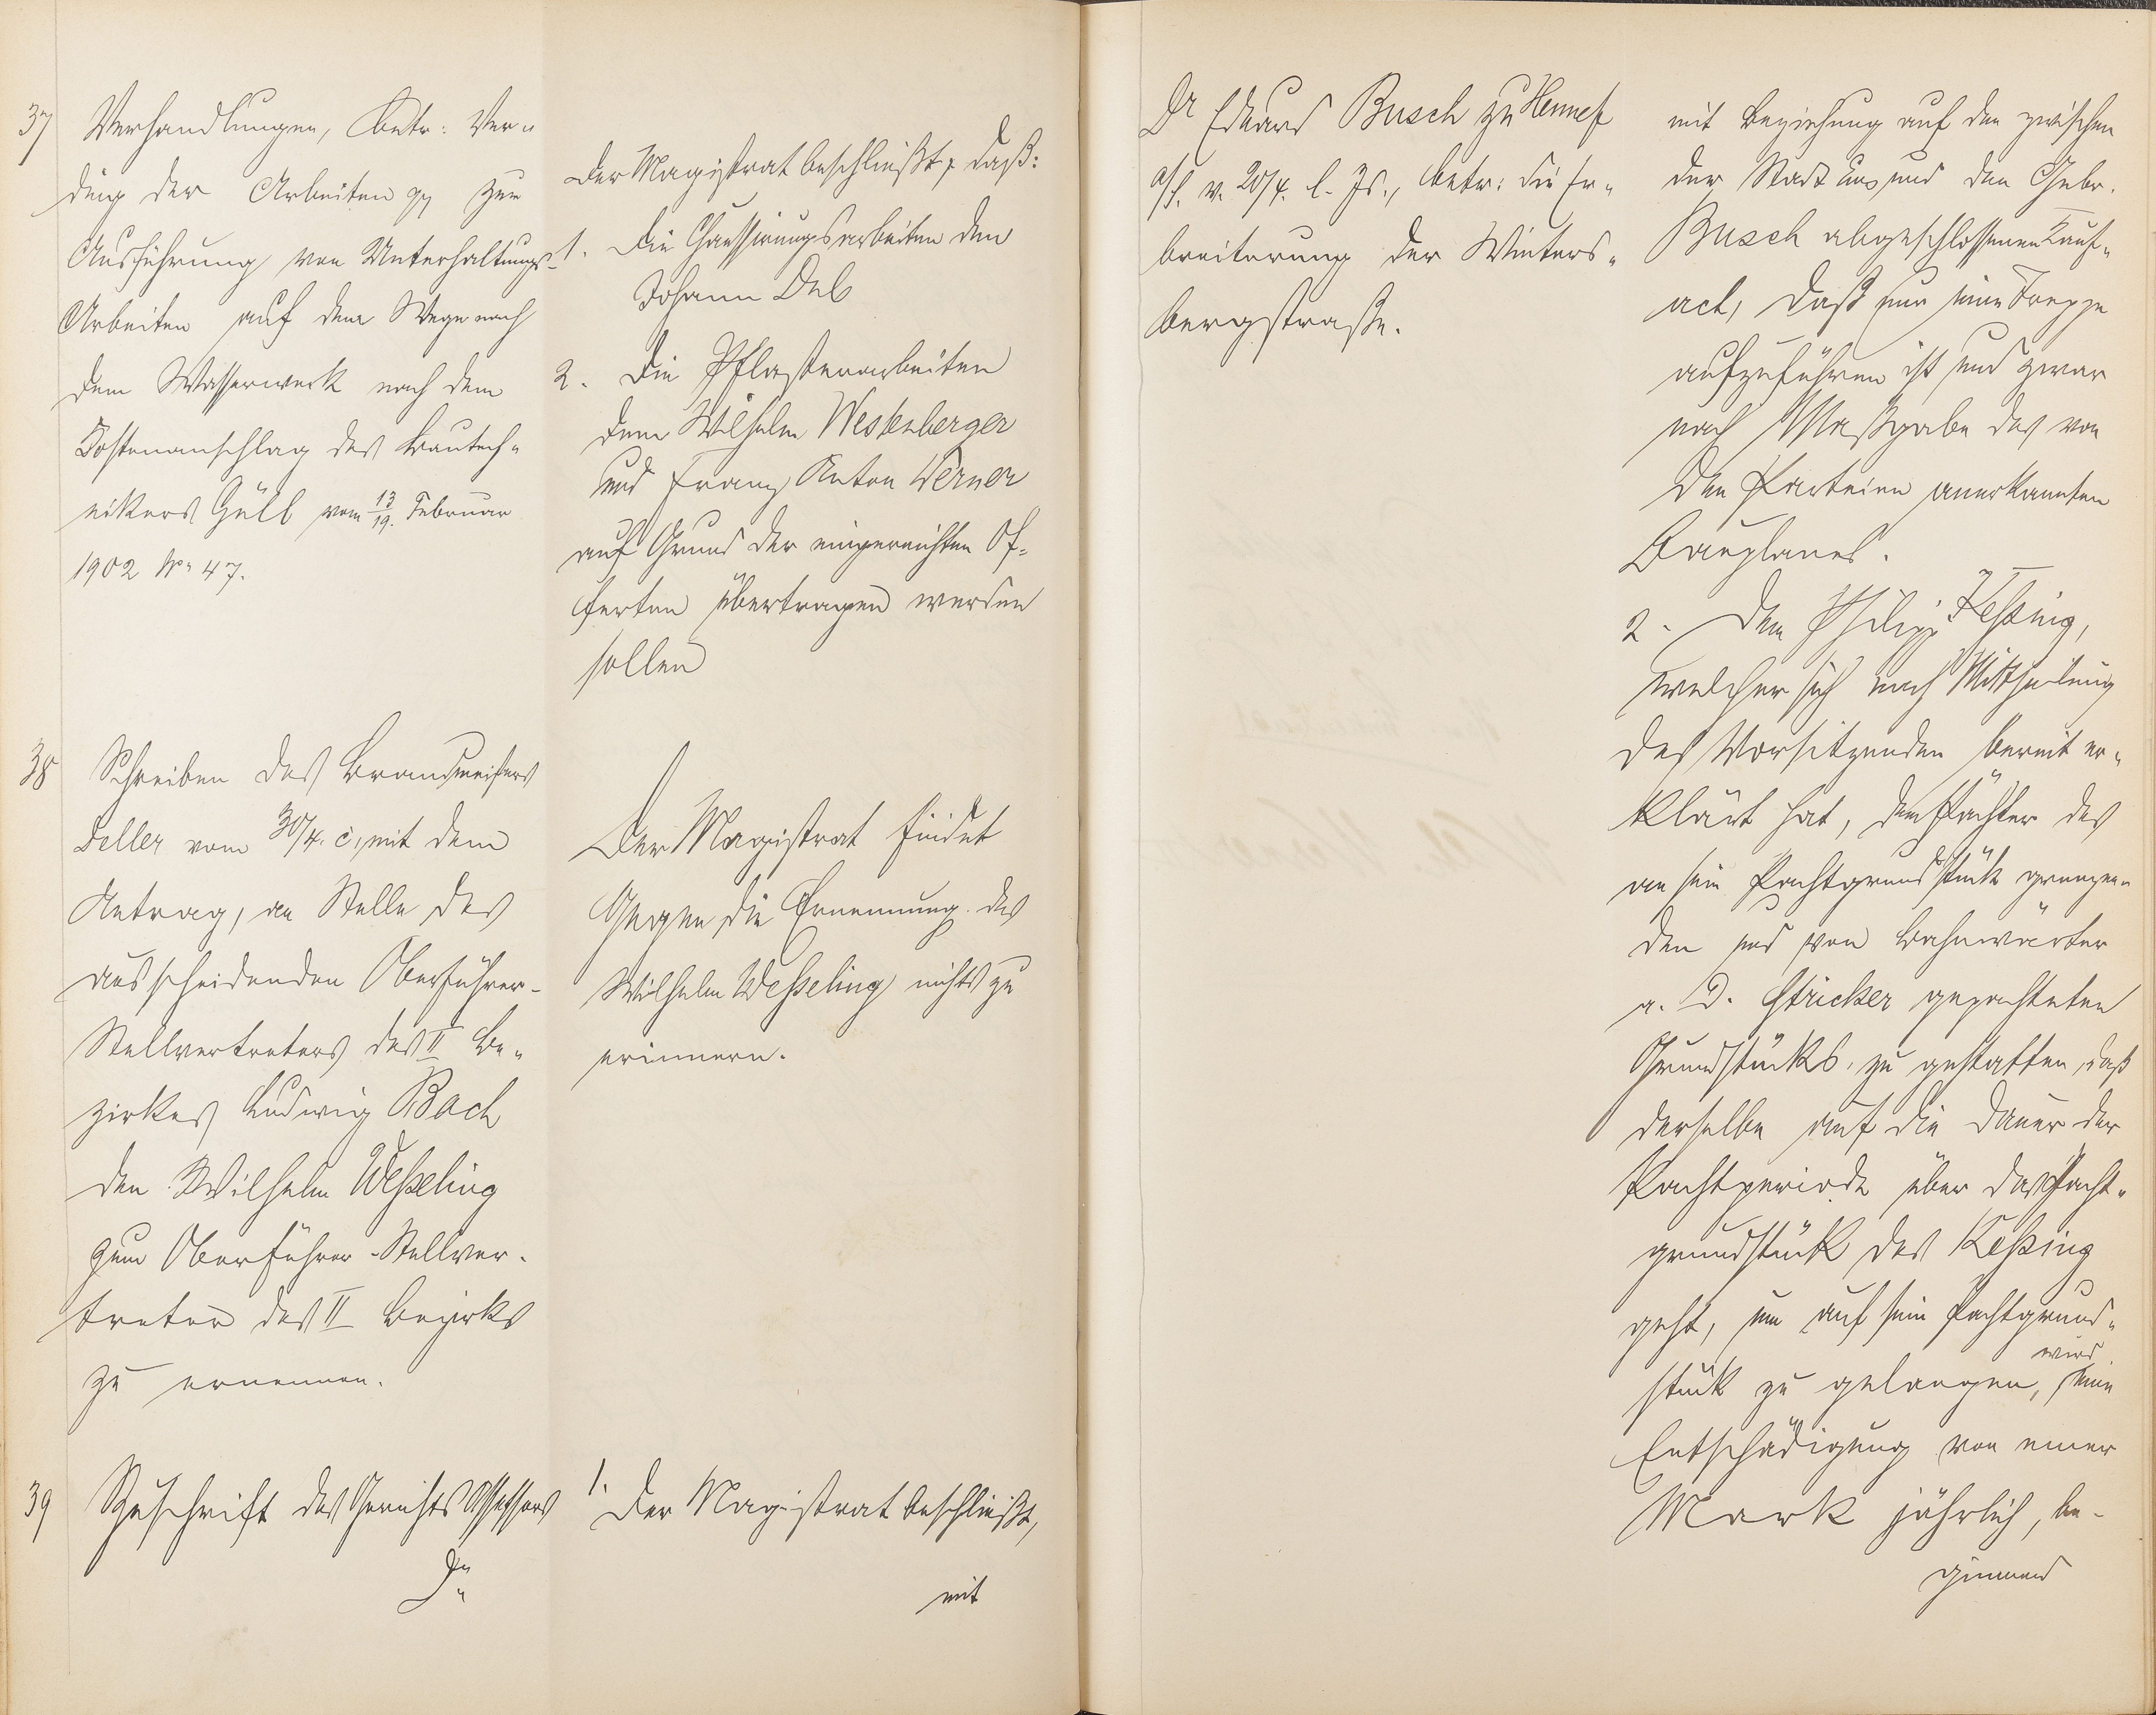 37 Verhandlungen, betr: Ver-
ding der Arbeiten pp zur
Ausführung von Unterhaltungs-
Arbeiten auf dem Wege nach
dem Wasserwerk nach dem
Kostenanschlag des Bautech-
nikers Güll vom 13/19. Februar
1902 No 47.
Der Magistrat beschließt, daß:
1. die Chaussirungsarbeiten dem
Johann
2. die Pflasterarbeiten
dem Wilhelm Westenberger
und Franz Anton Werner
auf Grund der eingereichten Of-
ferten übertragen werden
sollen
38 Schreiben des Brandmeisters
vom 30/4. c, mit dem
Antrag, an Stelle des
ausscheidenden Oberführer-
Stellvertreters des II Be-
zirkes Ludwig Bach
den Wilhelm Weßeling
zum Oberführer-Stellver-
treter des II Bezirks
zu ernennen.
Der Magistrat findet
Gegen die Ernennung des
Wilhelm Weßeling nichts zu
erinnern.
39 Zuschrift des Gerichts Assessors
Dr
1. Der Magistrat beschließt,
mit
Dr Eduard Busch zu Hennef
a/S. v. 20/4. l. Js., betr: die Er-
breiterung der Winters-
bergstraße.
mit Beziehung auf den zwischen
der Stadt Ems und den Gebr.
Busch abgeschlossenen Kauf-
act, daß nur eine Treppe
aufzuführen ist und zwar
nach Maßgabe des von
den Parteien anerkannten
Bauplanes.
2. Dem Philipp Keßing,
welcher sich nach Mittheilung
des Vorsitzenden bereit er-
klärt hat, dem Pächter des
an sein Pachtgrundstück grenzen-
den und von Bahnwärter
a. D. Stricker gepachteten
Grundstücks, zu gestatten, daß
derselbe auf die Dauer der
Pachtperiode über das Pacht-
grundstück des Keßing
geht, um auf sein Pachtgrund-
stück zu gelangen, wird eine
Entschädigung von einer
Mark jährlich, be-
ginnend